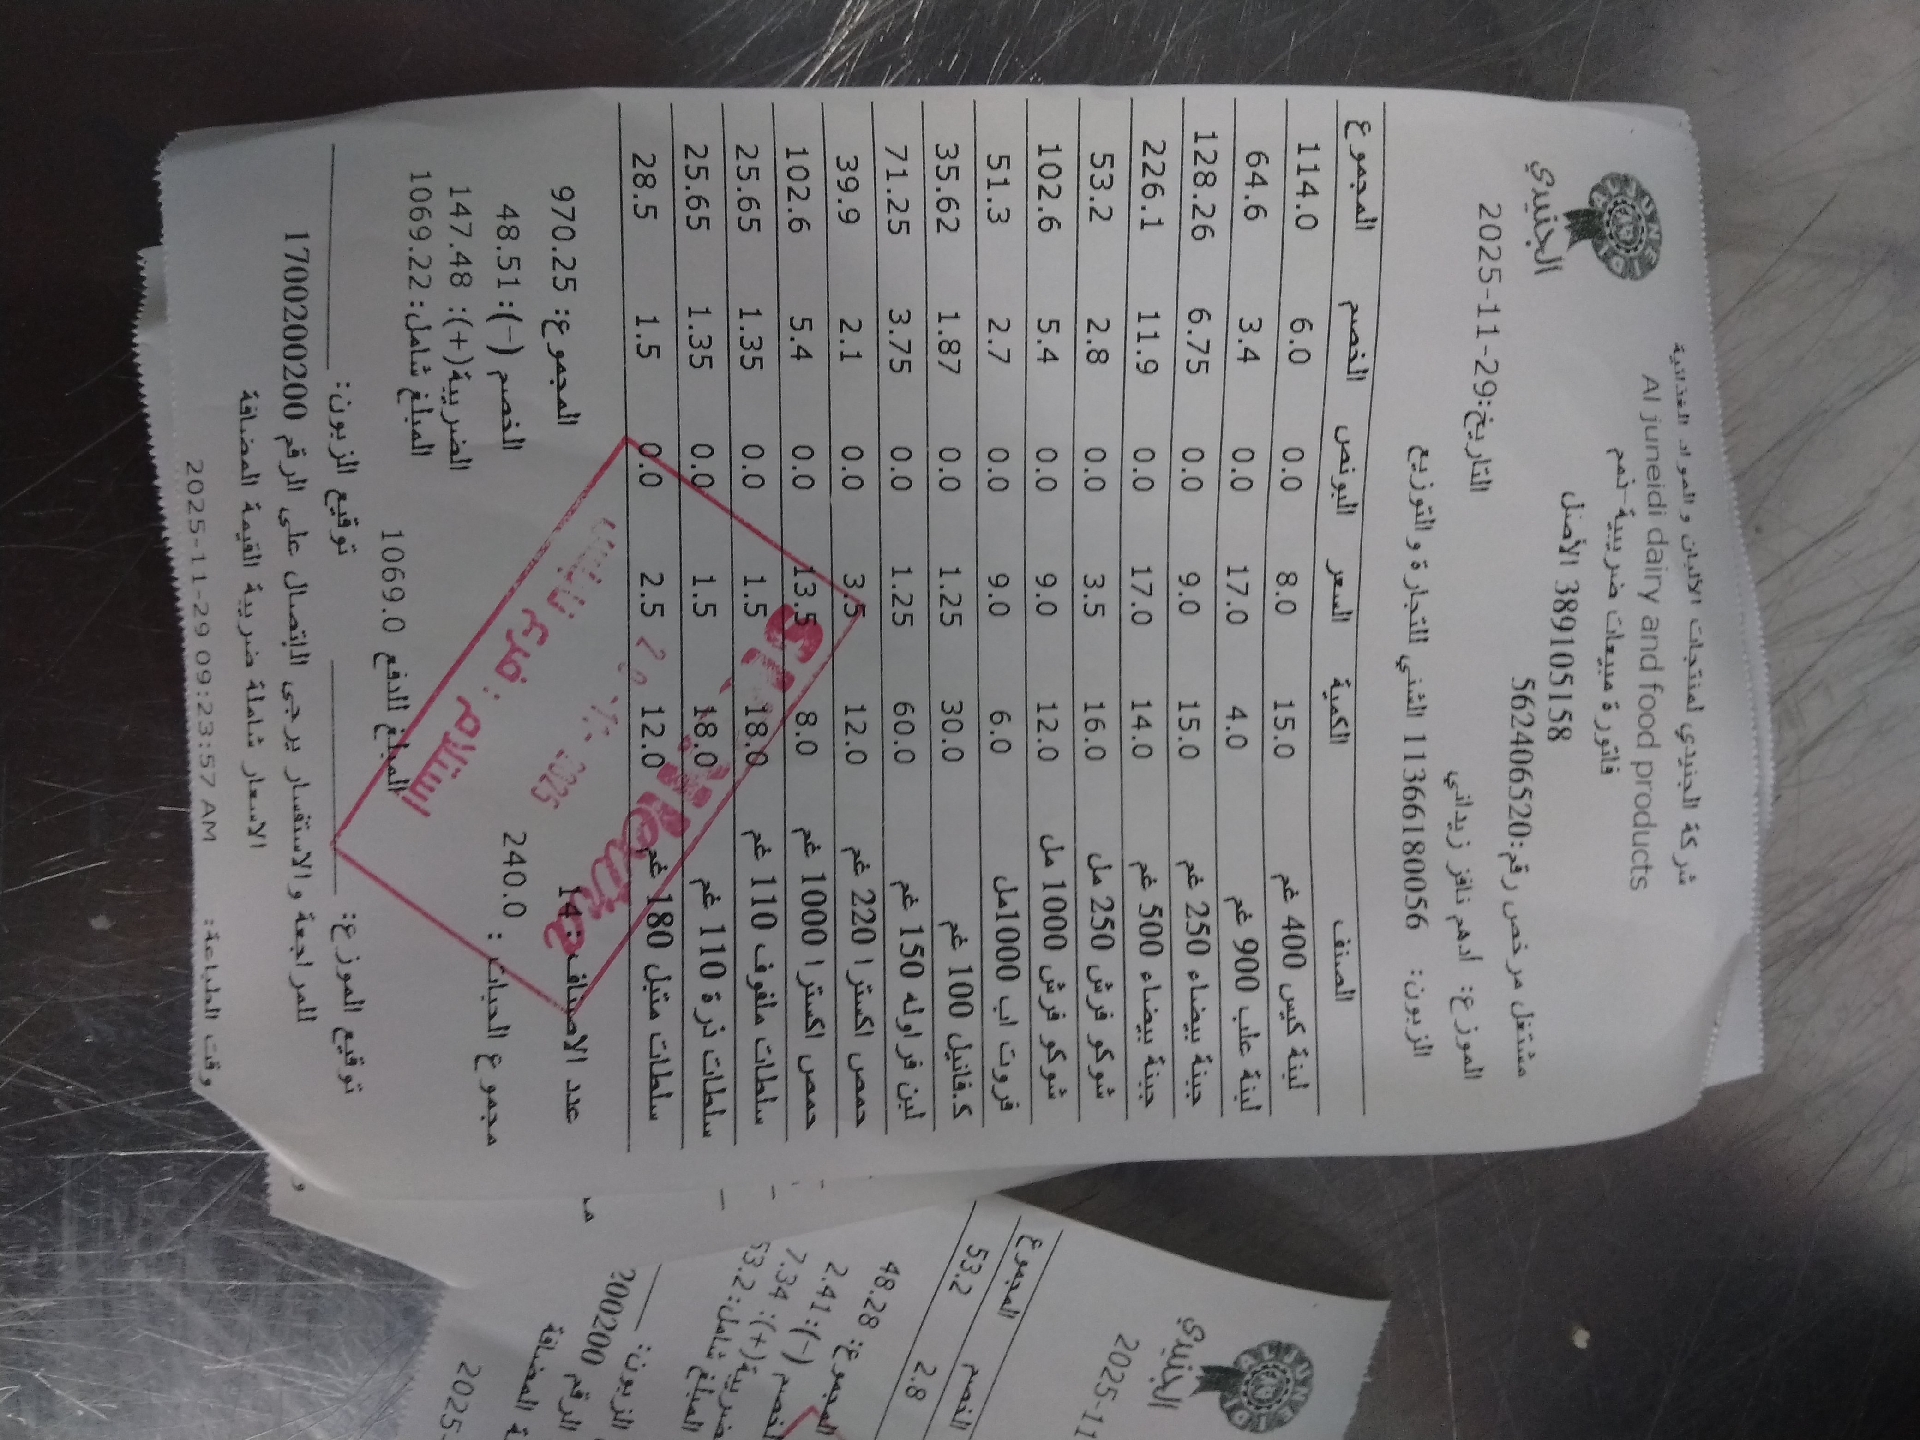 شركة الجنيدي لمنتجات الألبان والمواد الغذائية
Al juneidi dairy and food products
فاتورة مبيعات ضريبية-ذمم
389105158 الأصل
مشتغل مرخص رقم:562406520
الجنيدي
التاريخ:2025-11-29
الموزع: ادهم نافز زيداني
الزبون: 1136618​0056 الشني للتجارة والتوزيع
الصنف الكمية السعر البونص الخصم المجموع
لبنة كيس 400 غم 15.0 8.0 0.0 6.0 114.0
لبنة علب 900 غم 4.0 17.0 0.0 3.4 64.6
جبنة بيضاء 250 غم 15.0 9.0 0.0 6.75 128.26
جبنة بيضاء 500 غم 14.0 17.0 0.0 11.9 226.1
شوكو فرش 250 مل 16.0 3.5 0.0 2.8 53.2
شوكو فرش 1000 مل 12.0 9.0 0.0 5.4 102.6
فروت اب 1000مل 6.0 9.0 0.0 2.7 51.3
ك.فانيل 100 غم 30.0 1.25 0.0 1.87 35.62
لبن فراوله 150 غم 60.0 1.25 0.0 3.75 71.25
حمص اكسترا 220 غم 12.0 3.5 0.0 2.1 39.9
حمص اكسترا 1000 غم 8.0 13.5 0.0 5.4 102.6
سلطات ملفوف 110 غم 18.0 1.5 0.0 1.35 25.65
سلطات ذرة 110 غم 18.0 1.5 0.0 1.35 25.65
سلطات متبل 180 غم 12.0 2.5 0.0 1.5 28.5
عدد الاصناف: 14
المجموع: 970.25
مجموع الحبات : 240.0
الخصم (-): 48.51
الضريبة(+): 147.48
المبلغ شامل: 1069.22
المبلغ للدفع 1069.0
استلام : فرع
2025
توقيع الموزع: توقيع الزبون:
للمراجعة والاستفسار يرجى الاتصال على الرقم 1700200200
الاسعار شاملة ضريبة القيمة المضافة
وقت الطباعة: 2025-11-29 09:23:57 AM
الجنيدي
2025-11
الخصم المجموع
2.8 53.2
المجموع: 48.28
الخصم (-): 2.41
ضريبة(+): 7.34
المبلغ شامل: 53.2
الزبون:
الرقم 200200
المضافة
2025-